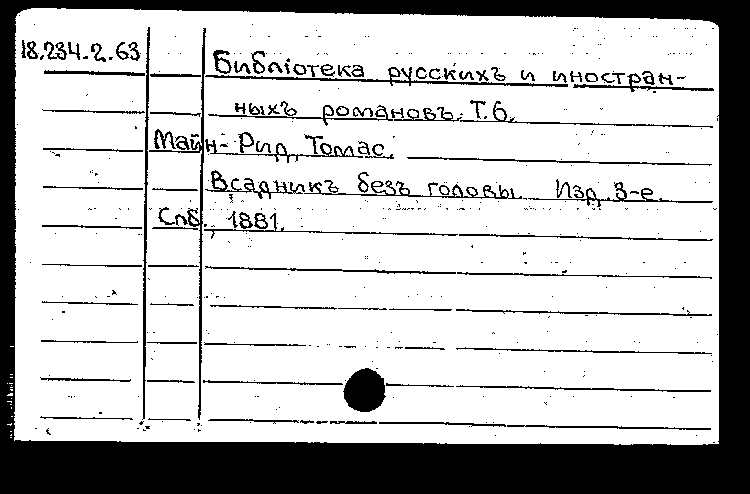 18.234.2.63
Библіотека русскихъ и иностран-
ныхъ романовъ. Т.6.
Майн-Рид, Томас.
Всадникъ безъ головы. Изд. 3-е.
Спб., 1881.